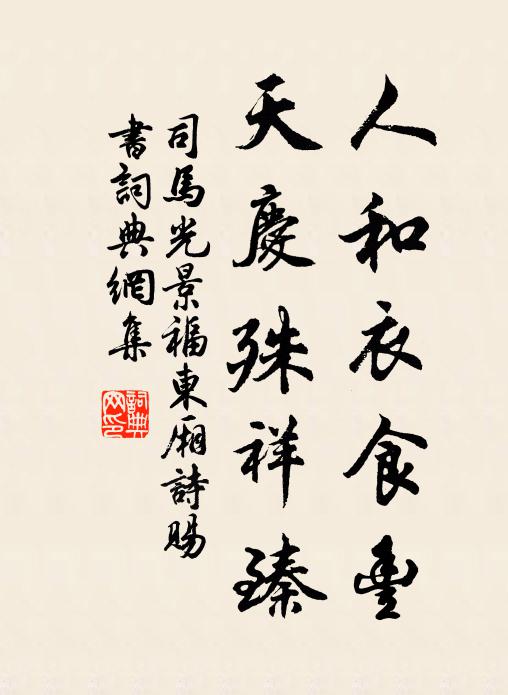 人和衣食豐
天慶殊祥臻
司馬光景福東廂詩賜
書詞典網集
詞典
网印